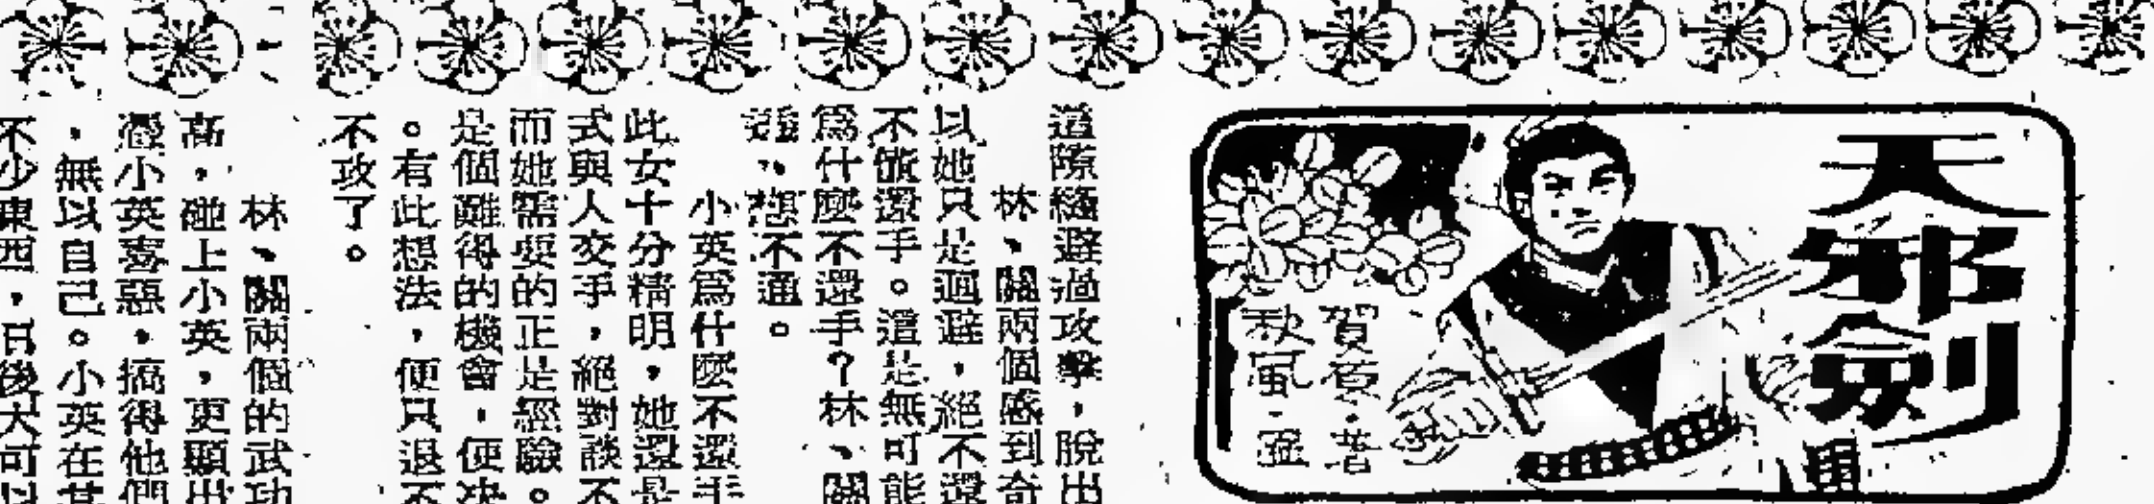 天邪劍
賀賓·著
秋風·盗
道隙縫避過攻擊,脫出
林、關兩個感到奇
以她只是迴避,絕不還
不做還手。這是無可能
爲什麼不還手?林、關
想不通。
小英爲什麼不還手
此女十分精明,她還是
式與人交手,絕對談不
而她需要的正是經驗。
是個難得的機會,便决
。有此想法,便只退不
不攻了。
林、關兩個的武功
高,碰上小英,更顯出
憑小英喜惡,搞得他們
,無以自己。小英在其
不少東西,日後大可以